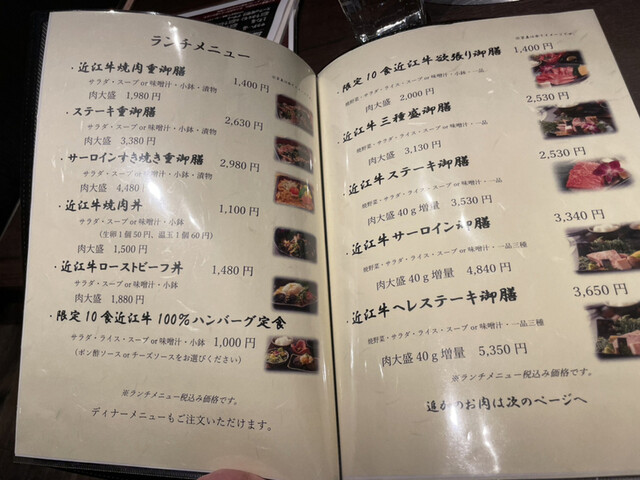 ランチメニュー
・近江牛焼肉重御膳
サラダ・スープ or 味噌汁・小鉢・漬物 1,400 円
肉大盛 1,980 円
・ステーキ重御膳
サラダ・スープ or 味噌汁・小鉢・漬物 2,630 円
肉大盛 3,380 円
・サーロインすき焼き重御膳
サラダ・スープ or 味噌汁・小鉢・漬物 2,980 円
肉大盛 4,480 円
・近江牛焼肉丼
サラダ・スープ or 味噌汁・小鉢 1,100 円
(生卵1個50円、温玉1個60円)
肉大盛 1,500 円
・近江牛ローストビーフ丼
サラダ・スープ or 味噌汁・小鉢 1,480 円
肉大盛 1,880 円
・限定10食近江牛100%ハンバーグ定食
サラダ・ライス・スープ or 味噌汁・小鉢 1,000 円
(ポン酢ソース or チーズソースをお選びください)
※ランチメニュー税込み価格です。
ディナーメニューもご注文いただけます。
・限定10食近江牛欲張り御膳 1,400 円
焼野菜・サラダ・ライス・スープ or 味噌汁・小鉢・一品
肉大盛 2,000 円
・近江牛三種盛御膳 2,530 円
焼野菜・サラダ・ライス・スープ or 味噌汁・一品
肉大盛 3,130 円
・近江牛ステーキ御膳 2,530 円
焼野菜・サラダ・ライス・スープ or 味噌汁・一品
肉大盛 40g 増量 3,530 円
・近江牛サーロイン御膳 3,340 円
焼野菜・サラダ・ライス・スープ or 味噌汁・一品三種
肉大盛 40g 増量 4,840 円
・近江牛ヘレステーキ御膳 3,650 円
焼野菜・サラダ・ライス・スープ or 味噌汁・一品三種
肉大盛 40g 増量 5,350 円
※ランチメニュー税込み価格です。
追加のお肉は次のページへ